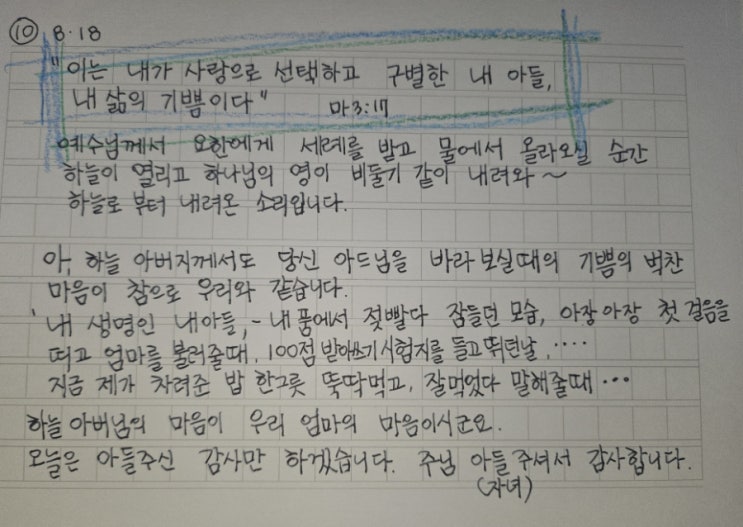 ⑩ 8·18
"이는 내가 사랑으로 선택하고 구별한 내 아들,
내 삶의 기쁨이다" 마3:17
예수님께서 요한에게 세례를 받고 물에서 올라오실 순간
하늘이 열리고 하나님의 영이 비둘기 같이 내려와~
하늘로 부터 내려온 소리입니다.
아, 하늘 아버지께서도 당신 아드님을 바라보실때의 기쁨의 벅찬
마음이 참으로 우리와 같습니다.
'내 생명인 내아들,- 내 품에서 젖빨다 잠들던 모습, 아장아장 첫 걸음을
띄고 엄마를 불러줄때, 100점 받아쓰기 시험지를 들고 뛰던날, ····
지금 제가 차려준 밥 한그릇 뚝딱먹고, 잘먹었다 말해줄때 ···
하늘 아버님의 마음이 우리 엄마의 마음이시군요.
오늘은 아들주신 감사만 하겠습니다. 주님 아들 주셔서 감사합니다.
(자녀)